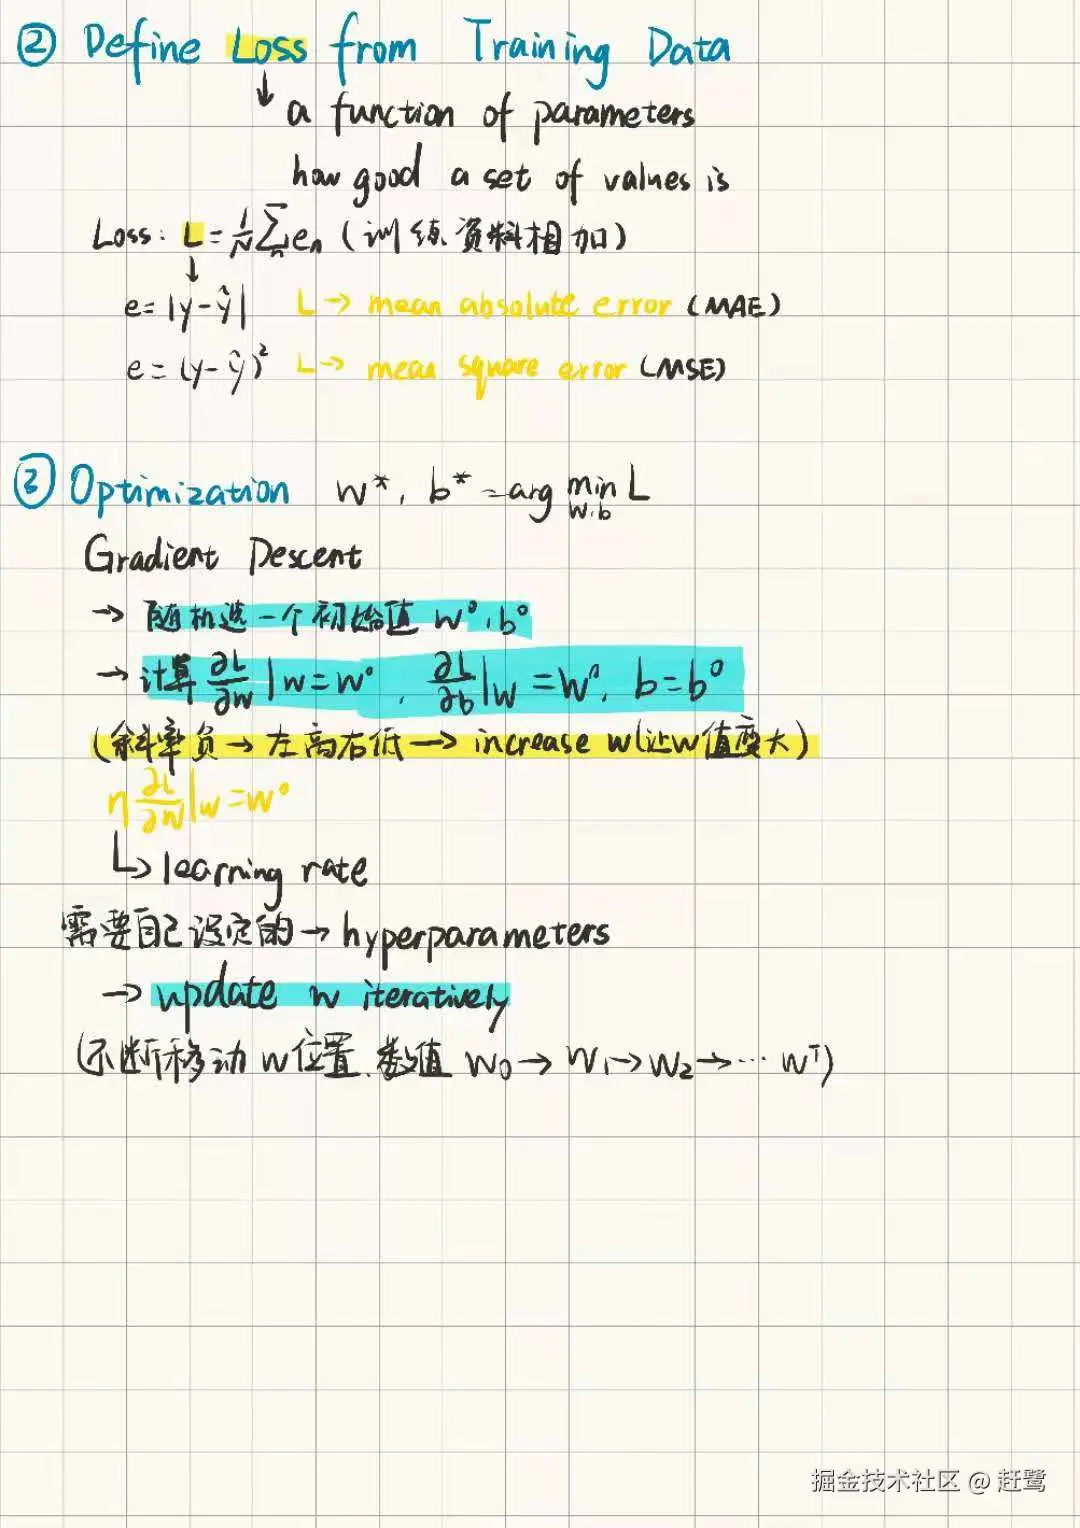 ② Define Loss from Training Data
↓ a function of parameters
how good a set of values is
Loss: L = 1/N ∑n en (训练资料相加)
↓
e = |y - ŷ| L → mean absolute error (MAE)
e = (y - ŷ)² L → mean square error (MSE)
③ Optimization w*, b* = arg min w,b L
Gradient Descent
→ 随机选一个初始值 w⁰, b⁰
→ 计算 ∂L/∂w | w = w⁰, ∂L/∂b | w = w⁰, b = b⁰
(斜率负 → 左高右低 → increase w (让w值变大)
η ∂L/∂w | w = w⁰
↳ learning rate
需要自己设定的 → hyperparameters
→ update w iteratively
(不断移动 w位置、数值 w₀ → w₁ → w₂ → ··· wᵀ)
掘金技术社区 @ 赶鹭